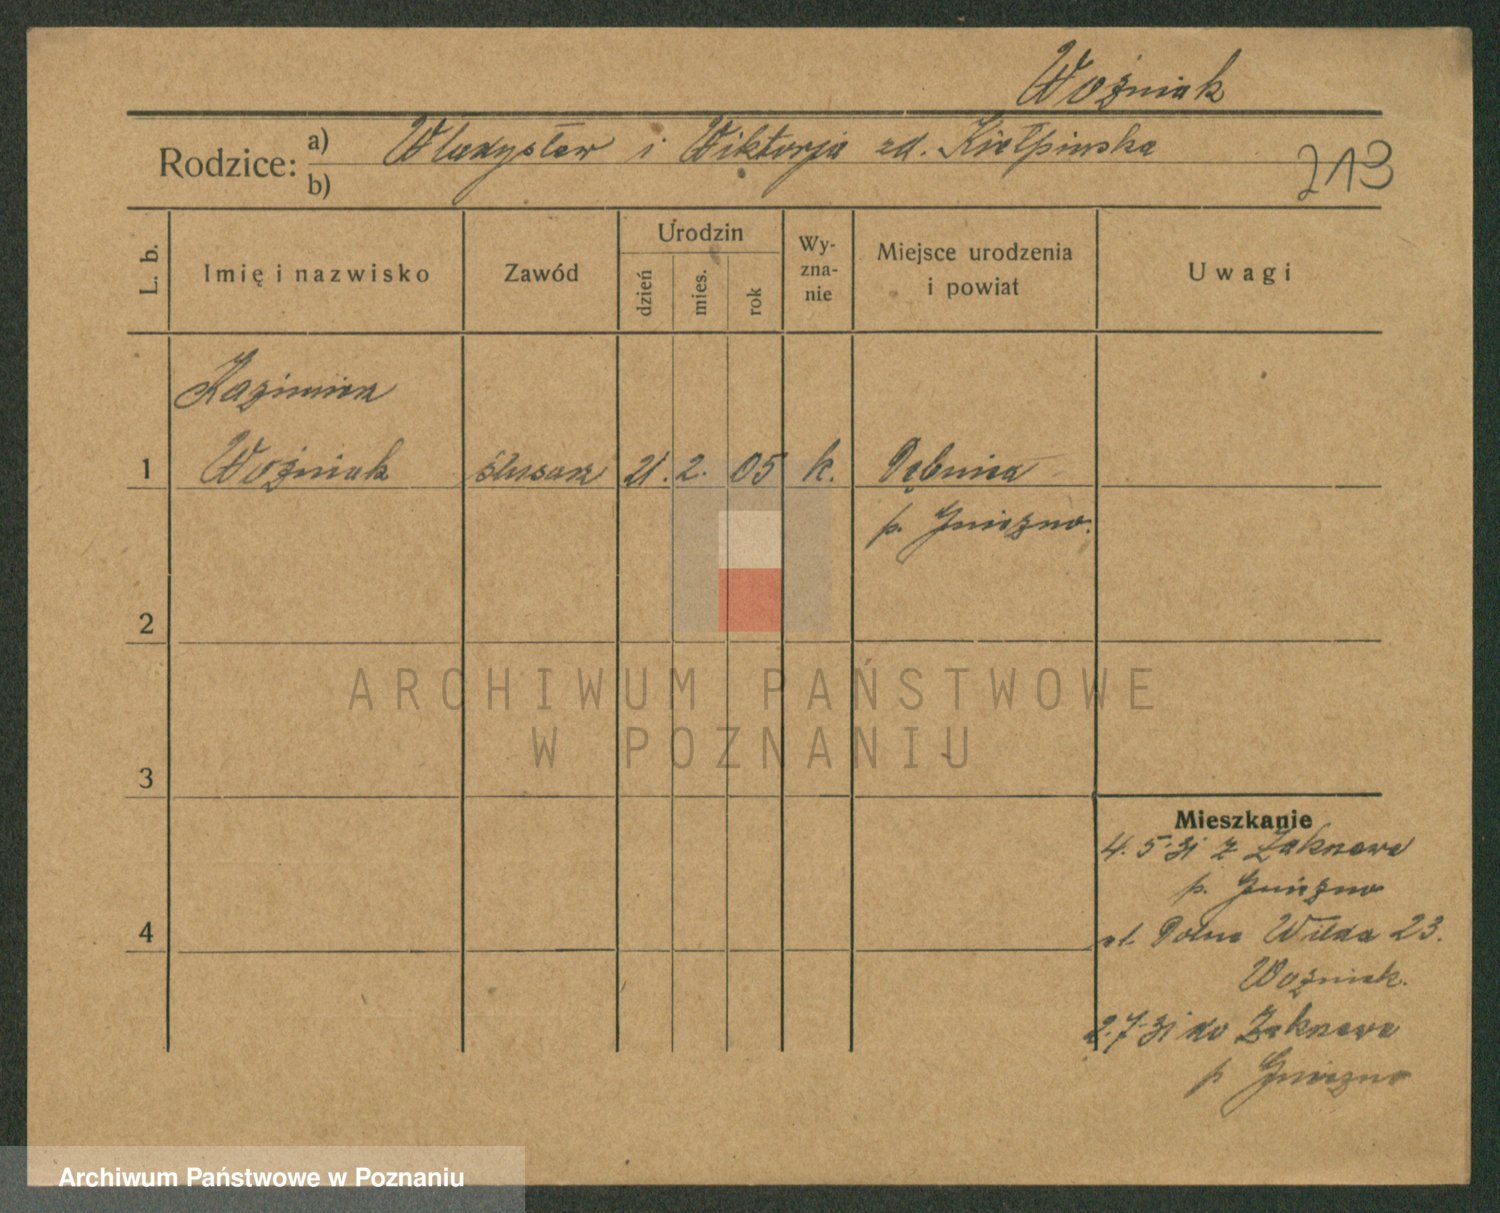 Woźniak
Rodzice: a) Władysław i Wiktorja zd. Kiełpinska
b)
213
L. b. Imię i nazwisko Zawód Urodzin dzień mies. rok Wyzna-nie Miejsce urodzenia i powiat Uwagi
Kazimierz
1 Woźniak ślusarz 21. 2. 05 k. Dębnica
p. Gniezno.
2
ARCHIWUM PAŃSTWOWE
W POZNANIU
3
Mieszkanie
4. 5. 31 z
p. Gniezno
4
ul. Dolna Wilda 23.
Woźniak.
2. 7. 31 do
p Gniezno
Archiwum Państwowe w Poznaniu